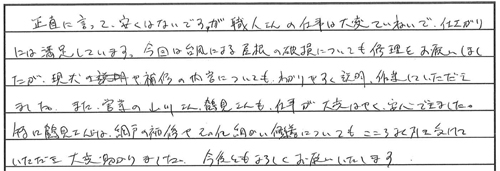 正直に言って、安くはないですが職人さんの仕事は大変ていねいで、仕上がり
には満足しています。今回は台風による屋根の破損についても修理をお願いしまし
たが、現状の説明や補修の内容についても、わかりやすく説明、作業していただき
ました。また、営業の山川さん、鶴見さんも、仕事が大変はやく、安心できました。
特に鶴見さんは、網戸の補修やその他細かい修繕についてもこころよく引き受けて
いただき大変助かりました。今後ともよろしくお願いいたします。